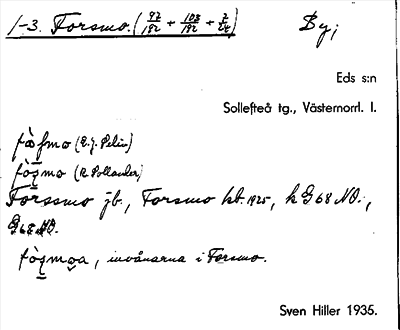 1-3. Forsmo. (97/192 + 108/192 + 7/24) By;
Eds s:n
Sollefteå tg., Västernorrl. l.
(E. J. Pelin)
(R. Pollander)
Forssmo jb., Forsmo kb. 1925, k G 68 NO.,
G 68 NO.
invånarna i Forsmo.
Sven Hiller 1935.